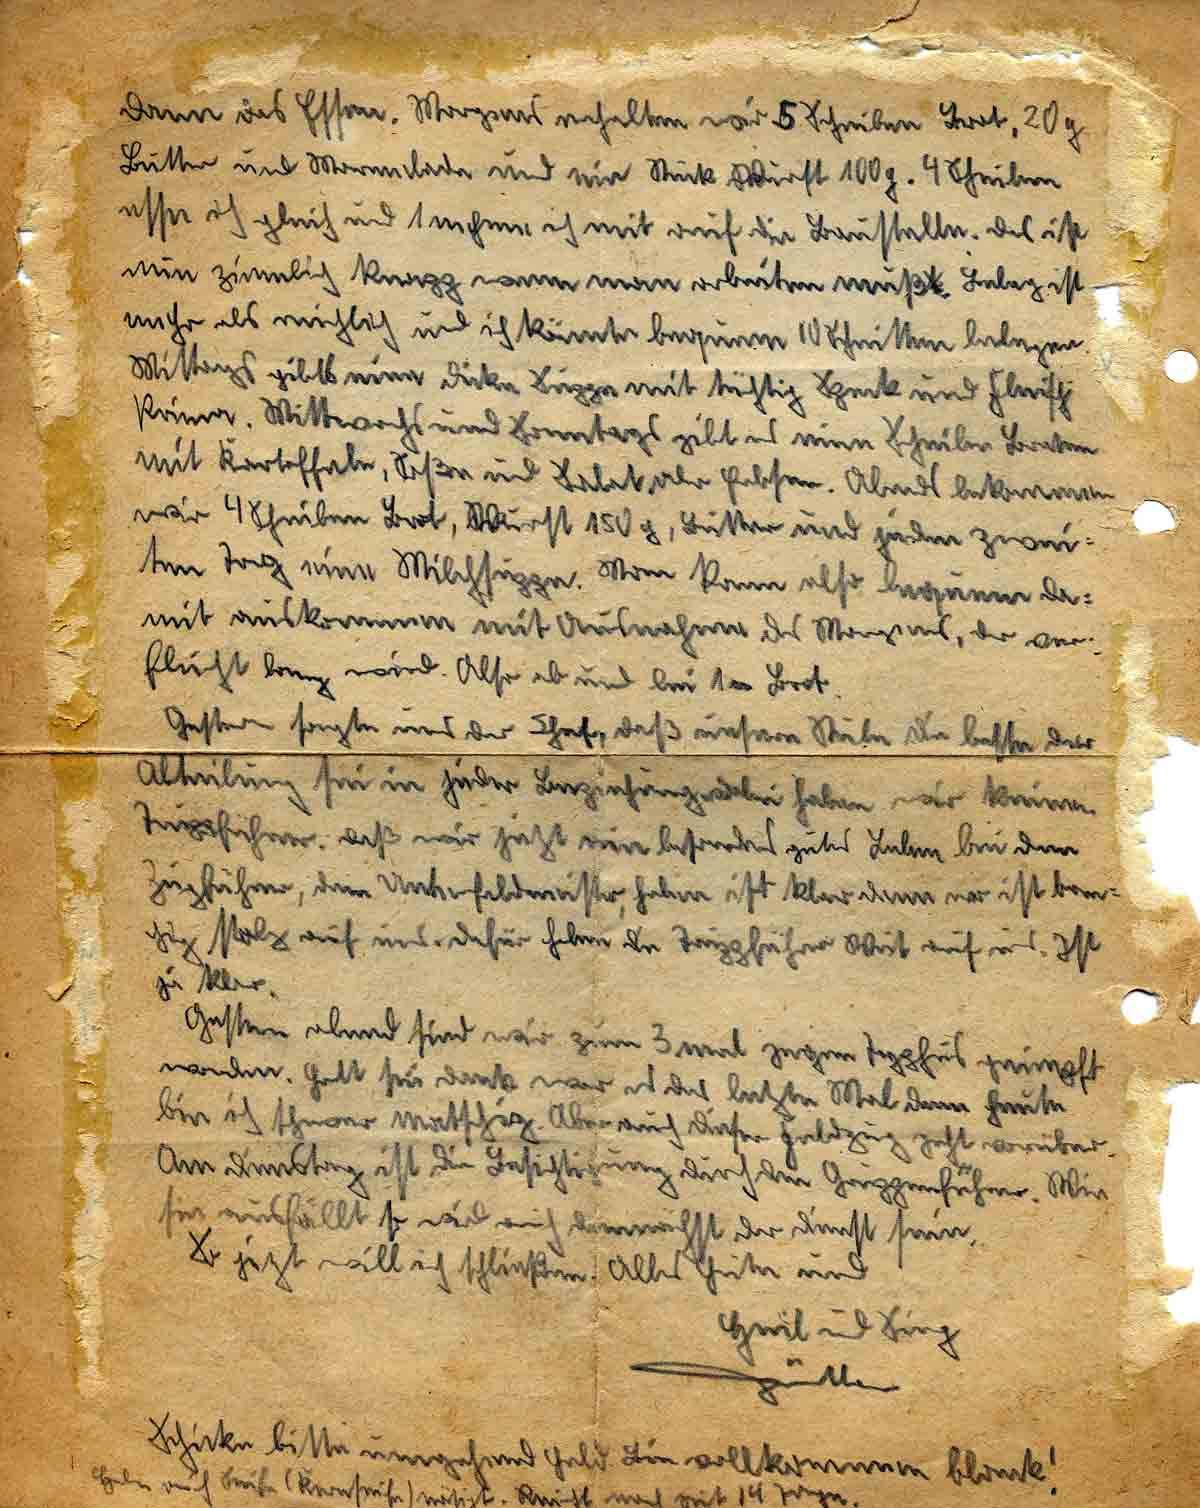 Dann das Essen. Morgens erhalten wir 5 Scheiben Brot, 20 g
Butter und Marmelade und ein Stück Wurst 100 g. 4 Scheiben
esse ich gleich und 1 nehme ich mit auf die Baustelle. Das ist
nun ziemlich knapp wenn man arbeiten muß. Belag ist
mehr als reichlich und ich könnte bequem 10 Schnitten belegen.
Mittags gibts eine dicke Suppe mit tüchtig Speck und Fleisch
Prima. Mittwochs und Sonntags gibt es eine Scheibe Braten
mit Kartoffeln, Soße und Salat oder Erbsen. Abends bekommen
wir 4 Scheiben Brot, Wurst 150 g, Butter und jeden zwei=
ten Tag eine Milchsuppe. Man kann also bequem da=
mit auskommen mit Ausnahme des Morgens, der ver=
flucht lang wird. Also ab und bei 1 Brot.
Gestern sagte uns der Chef, daß unsere Stube die beste der
Abteilung sei in jeder Beziehung dabei haben wir keinen
Truppführer. Daß wir jetzt ein besonders gutes Leben bei dem
Zugführer, dem Unterfeldmeister, haben ist klar denn er ist
stolz auf uns. Dafür haben die Truppführer Wut auf uns. Ist
ja klar.
Gestern abend sind wir zum 3 mal gegen Typhus geimpft
worden. Gott sei dank war es das letzte Mal denn heute
bin ich schwer matschig. Aber auch dieser Feldzug geht vorüber.
Am Dienstag ist die Besichtigung durch den Gruppenführer. Wie
sie ausfällt so wird auch demnächst der Dienst sein.
So jetzt will ich schließen. Alles Gute und
Heil und Sieg
Günther
Schicke bitte umgehend Geld. Bin vollkommen blank!
Habe auch Seife (Kernseife) nötig. Reicht noch seit 14 Tagen.